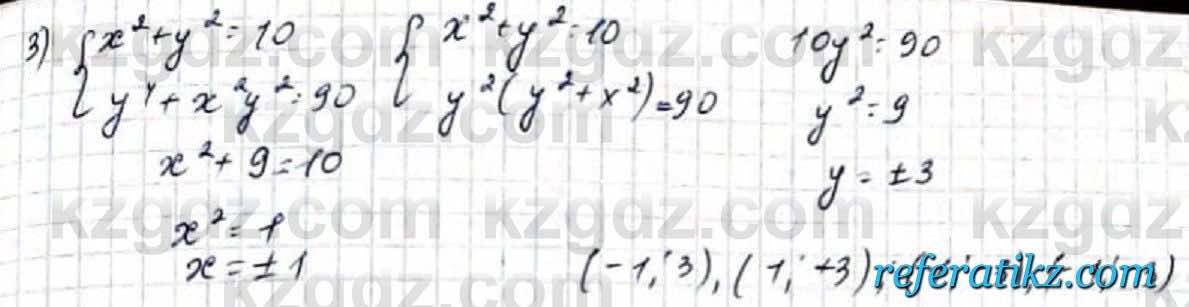 3) { x² + y² = 10 { x² + y² = 10 10y² = 90
y⁴ + x²y² = 90 y²(y² + x²) = 90 y² = 9
x² + 9 = 10 y = ±3
x² = 1
x = ±1 (-1; 3), (1; +3)
kzgdz.com
referatikz.com